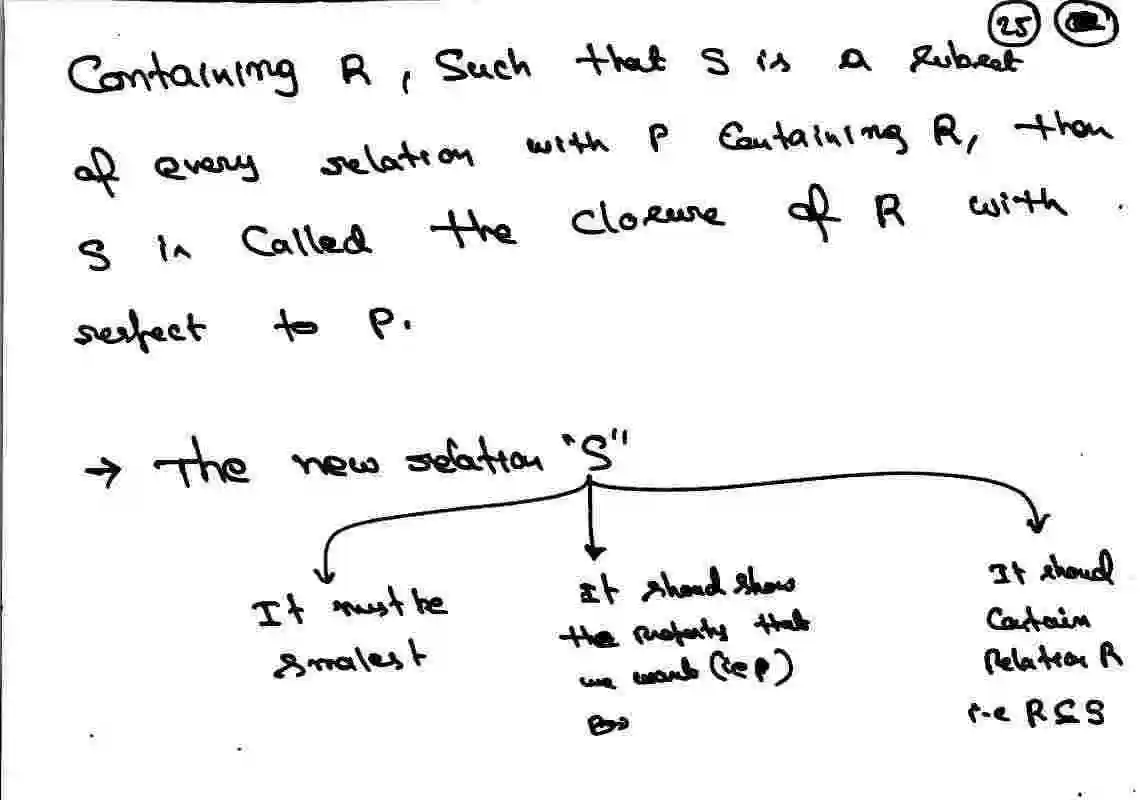 25
Containing R, Such that S is a subset
of every relation with P Containing R, then
S is Called the closure of R with
respect to P.
→ The new relation "S"
It must be
smalest
It should show
the property that
we want (ie P)
It should
Contain
Relation R
i-e R ⊆ S